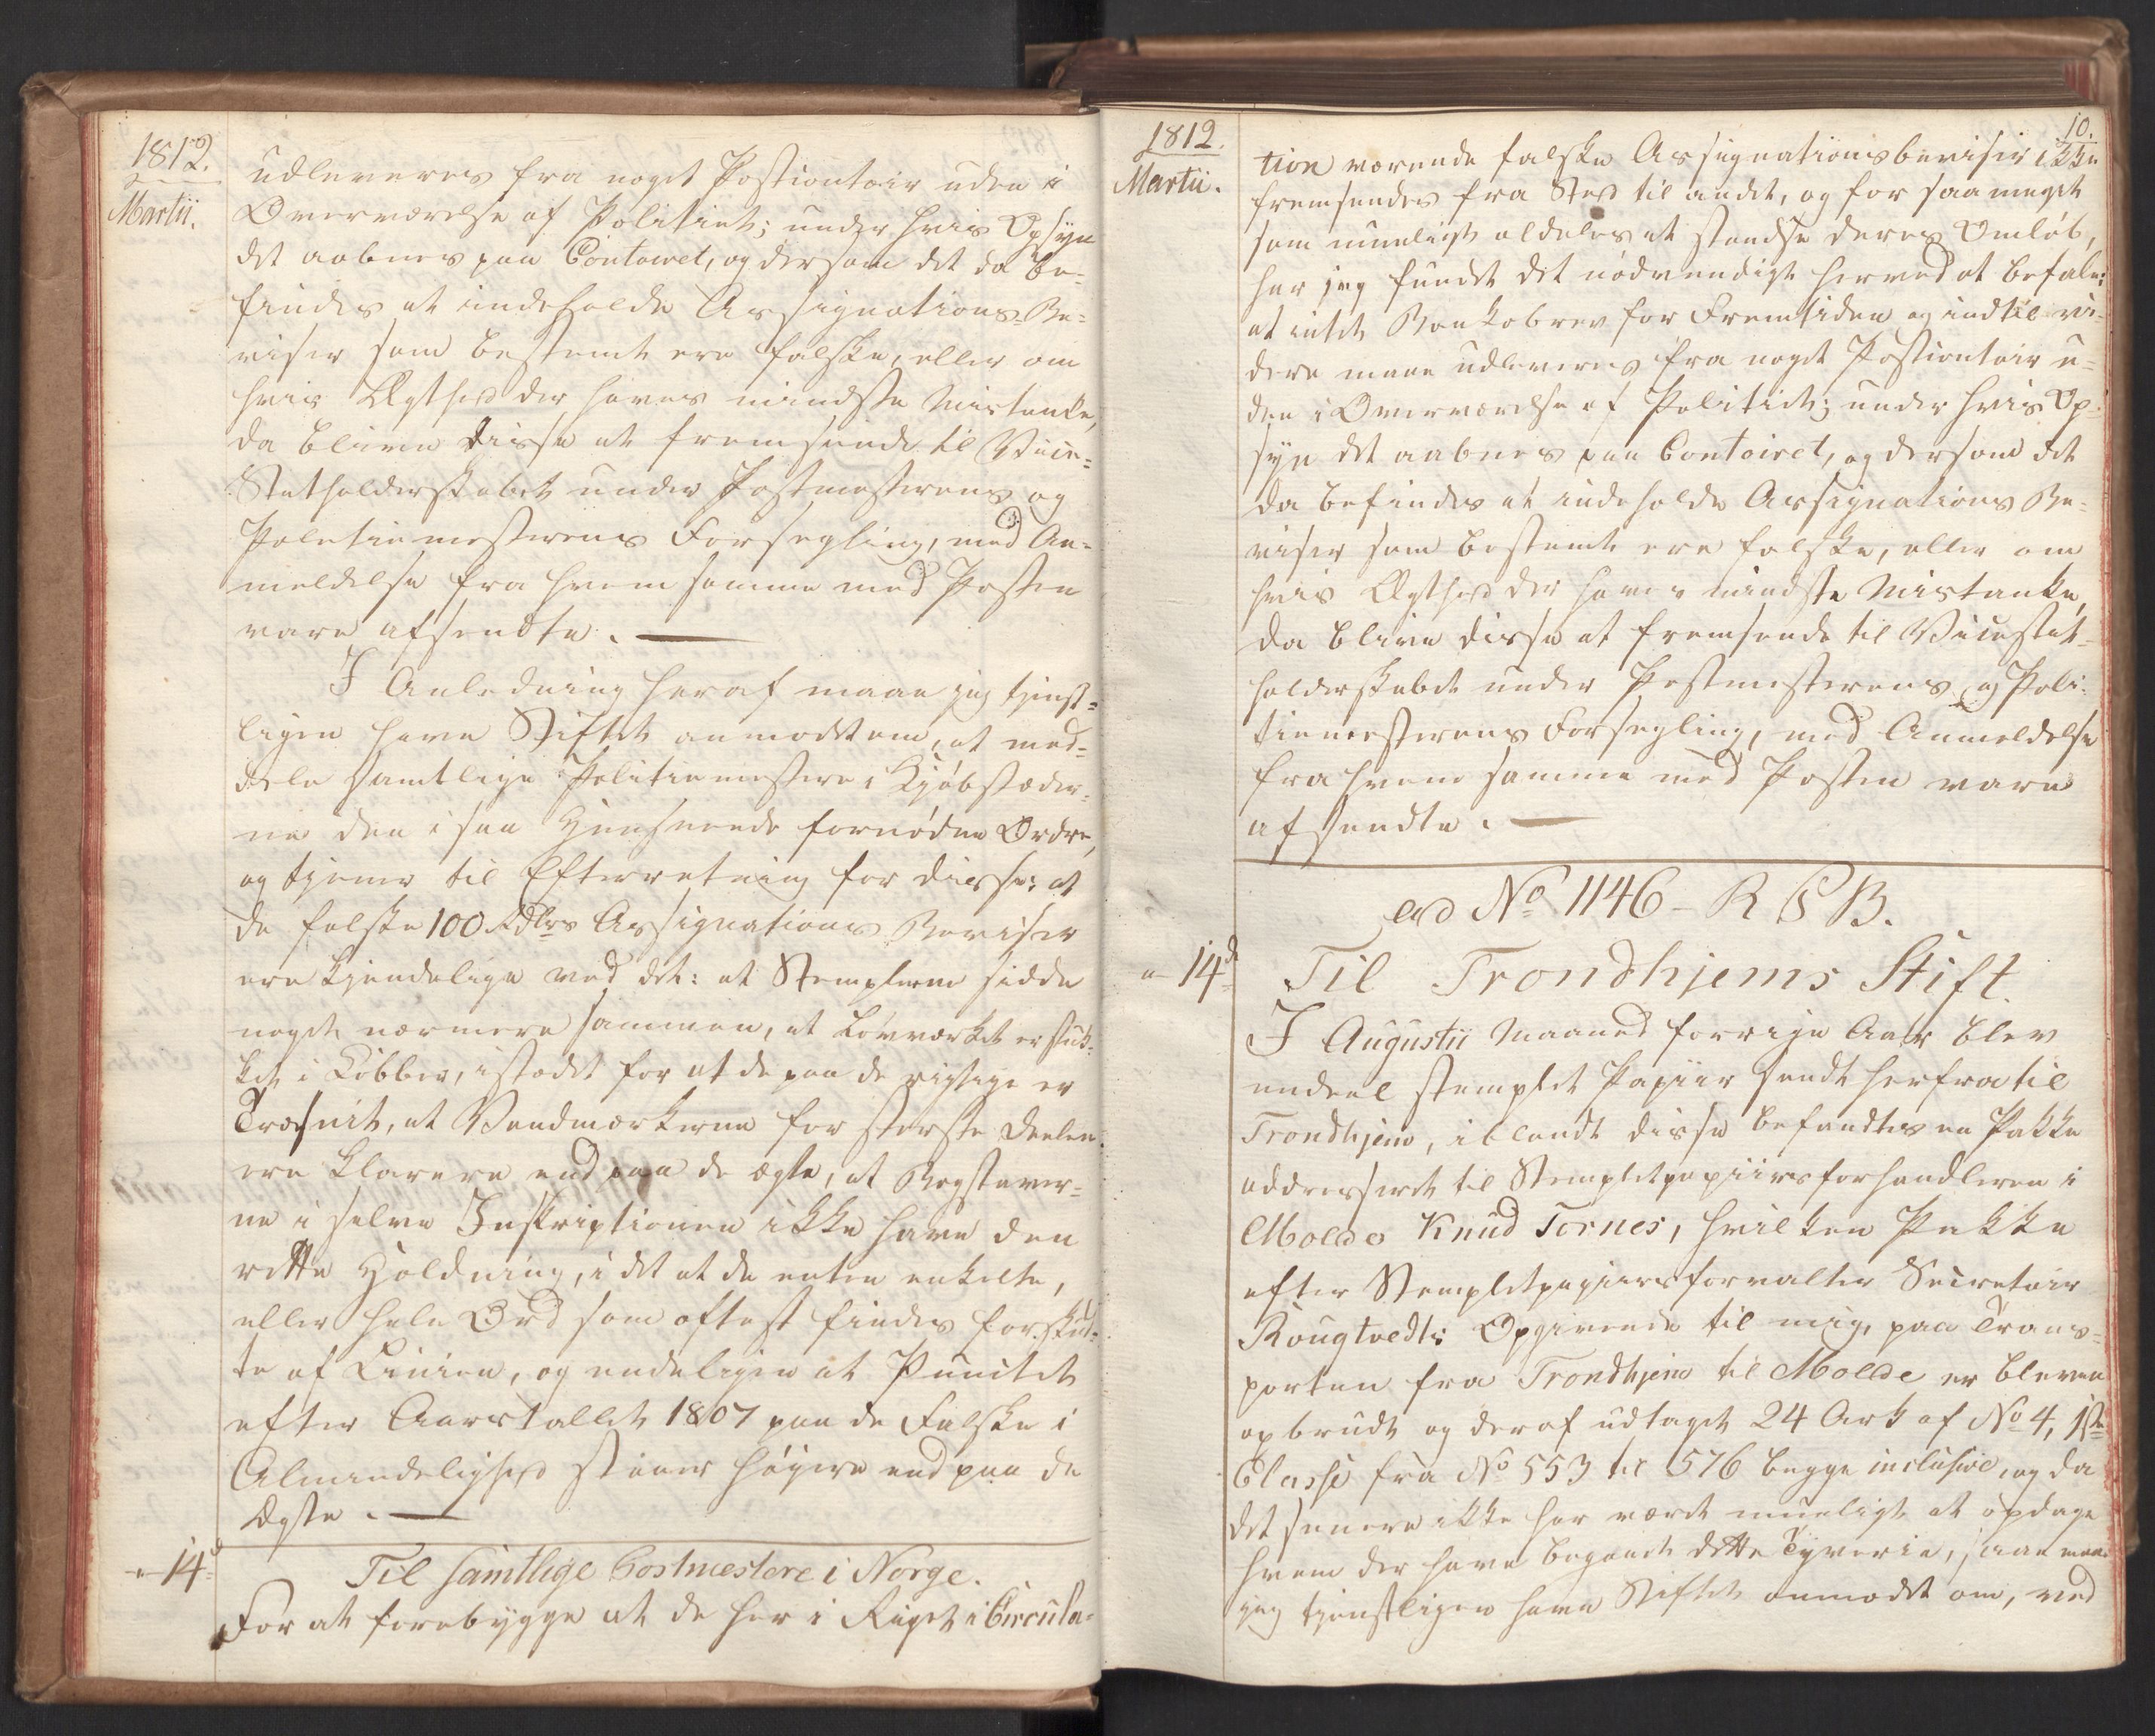 1812.
Martii.
udleveres fra noget Postcontoir uden i
Overværelse af Politiet; under hvis Opsyn
det aabnes paa Contoiret, og dersom det da be-
findes at indeholde Assignations-Be-
viser som bestemt ere falske, eller om
hvis Ægthed der haves mindste Mistanke,
da blive disse at fremsende til Vice-
Statholderskabet under Postmesterens og
Politiemesterens Forsegling, med An-
meldelse fra hvem samme med Posten
vare afsendte.
I Anledning heraf maae jeg tjenst-
ligen have Stiftet anmodet om, at med-
dele samtlige Politiemestere i Kjøbstæder-
ne den i saa Henseende fornødne Ordre,
og tjener til Efterretning for disse: at
de falske 100 Rdlrs Assignations Beviser
ere kjendelige ved det: at Stemplerne sidde
noget nærmere sammen, at Løvværket er stuk-
ket i Kobber, istædet for at de paa de rigtige er
Træsnit, at Vandmærkerne for største Deelen
ere klarere end paa de ægte, at Bogstaver-
ne i selve Inskriptionen ikke have den
rette Holdning, i det at de enten enkelte,
eller hele Ord som oftest findes forskud-
te af Linien, og endeligen at Punctet
efter Aarstallet 1807 paa de Falske i
Almindelighed staaer høyere end paa de
Ægte.
" 14d
Til samtlige Postmestere i Norge.
For at forebygge at de her i Riget i Circula-
10.
1812.
Martii.
tion værende falske Assignationsbeviser ikke
fremsendes fra Sted til andet, og for saa meget
som mueligt aldeles at standse deres Omløb,
har jeg fundet det nødvendigt herved at befale:
at intet Bankobrev for Fremtiden og indtil vi-
dere maae udleveres fra noget Postcontoir u-
den i Overværelse af Politiet; under hvis Op-
syn det aabnes paa Contoiret, og dersom det
da befindes at indeholde Assignations Be-
viser som bestemt ere falske, eller om
hvis Ægthed der haves mindste Mistanke,
da blive disse at fremsende til Vicestat-
holderskabet under Postmesterens og Poli-
tiemesterens Forsegling, med Anmeldelse
fra hvem samme med Posten vare
afsendte.
ad No 1146 - R S B.
" 14d
Til Trondhjems Stift.
I Augustii Maaned forrige Aar blev
endeel stemplet Papiir sendt herfra til
Trondhjem, iblandt disse befandtes en Pakke
addresseret til Stempletpapiirsforhandleren i
Molde Knud Tornes, hvilken Pakke
efter Stempletpapiirsforvalter Secretair
Rougtvedts Opgivende til mig, paa Trans-
porten fra Trondhjem til Molde er bleven
opbrudt og deraf udtaget 24 Ark af No 4, 1ste
Classe fra No 553 til 576 begge inclusive, og da
det senere ikke har været mueligt at opdage
hvem der have begaaet dette Tyverie, saa maae
jeg tjenstligen have Stiftet anmodet om, ved